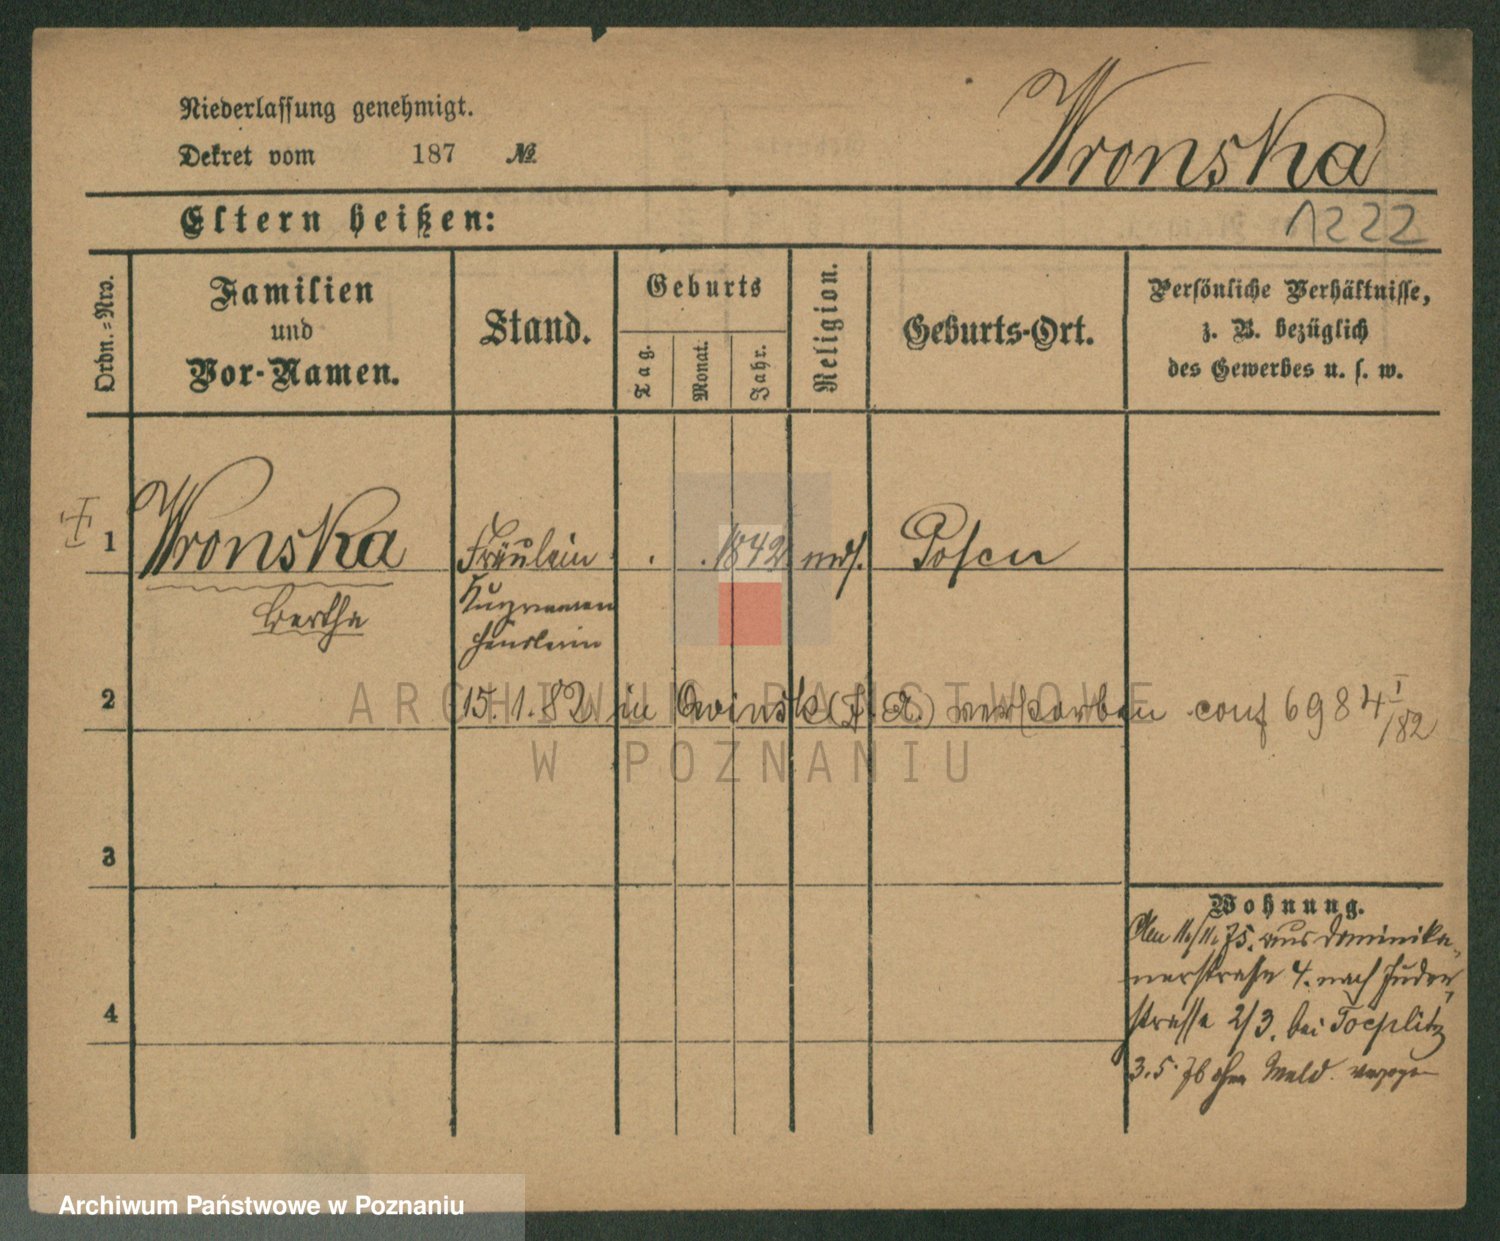 Niederlassung genehmigt.
Dekret vom 187 №
Wronska
Eltern heißen:
1222
Ordn.=Nro.
Familien
und
Vor-Namen.
Stand.
Geburts
Tag.
Monat.
Jahr.
Religion.
Geburts-Ort.
Persönliche Verhältnisse,
z. B. bezüglich
des Gewerbes u. s. w.
1 Wronska Fräulein . . 1842 mos. Posen
Bertha
2 15.1.82 in Owinsk (J. A.) verstorben conf 6984 I/82
3
4
Wohnung.
Den 11./11. 75. aus Dominika-
nerstraße 4. nach Juden-
strasse 2/3. bei Toeplitz
3.5.76 ohne Meld. verzogen
ARCHIWUM PAŃSTWOWE
W POZNANIU
Archiwum Państwowe w Poznaniu